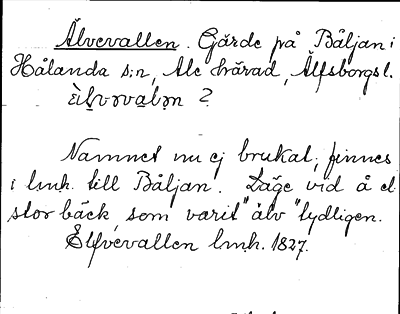 Älvevallen. Gärde på Båljan i
Hålanda s:n, Ale härad, Älfsborgs l.
èlvəvalən ?
Namnet nu ej brukat, finnes
i lmh. till Båljan. Läge vid å el.
stor bäck, som varit "älv" tydligen.
Elfvevallen lmh. 1827.